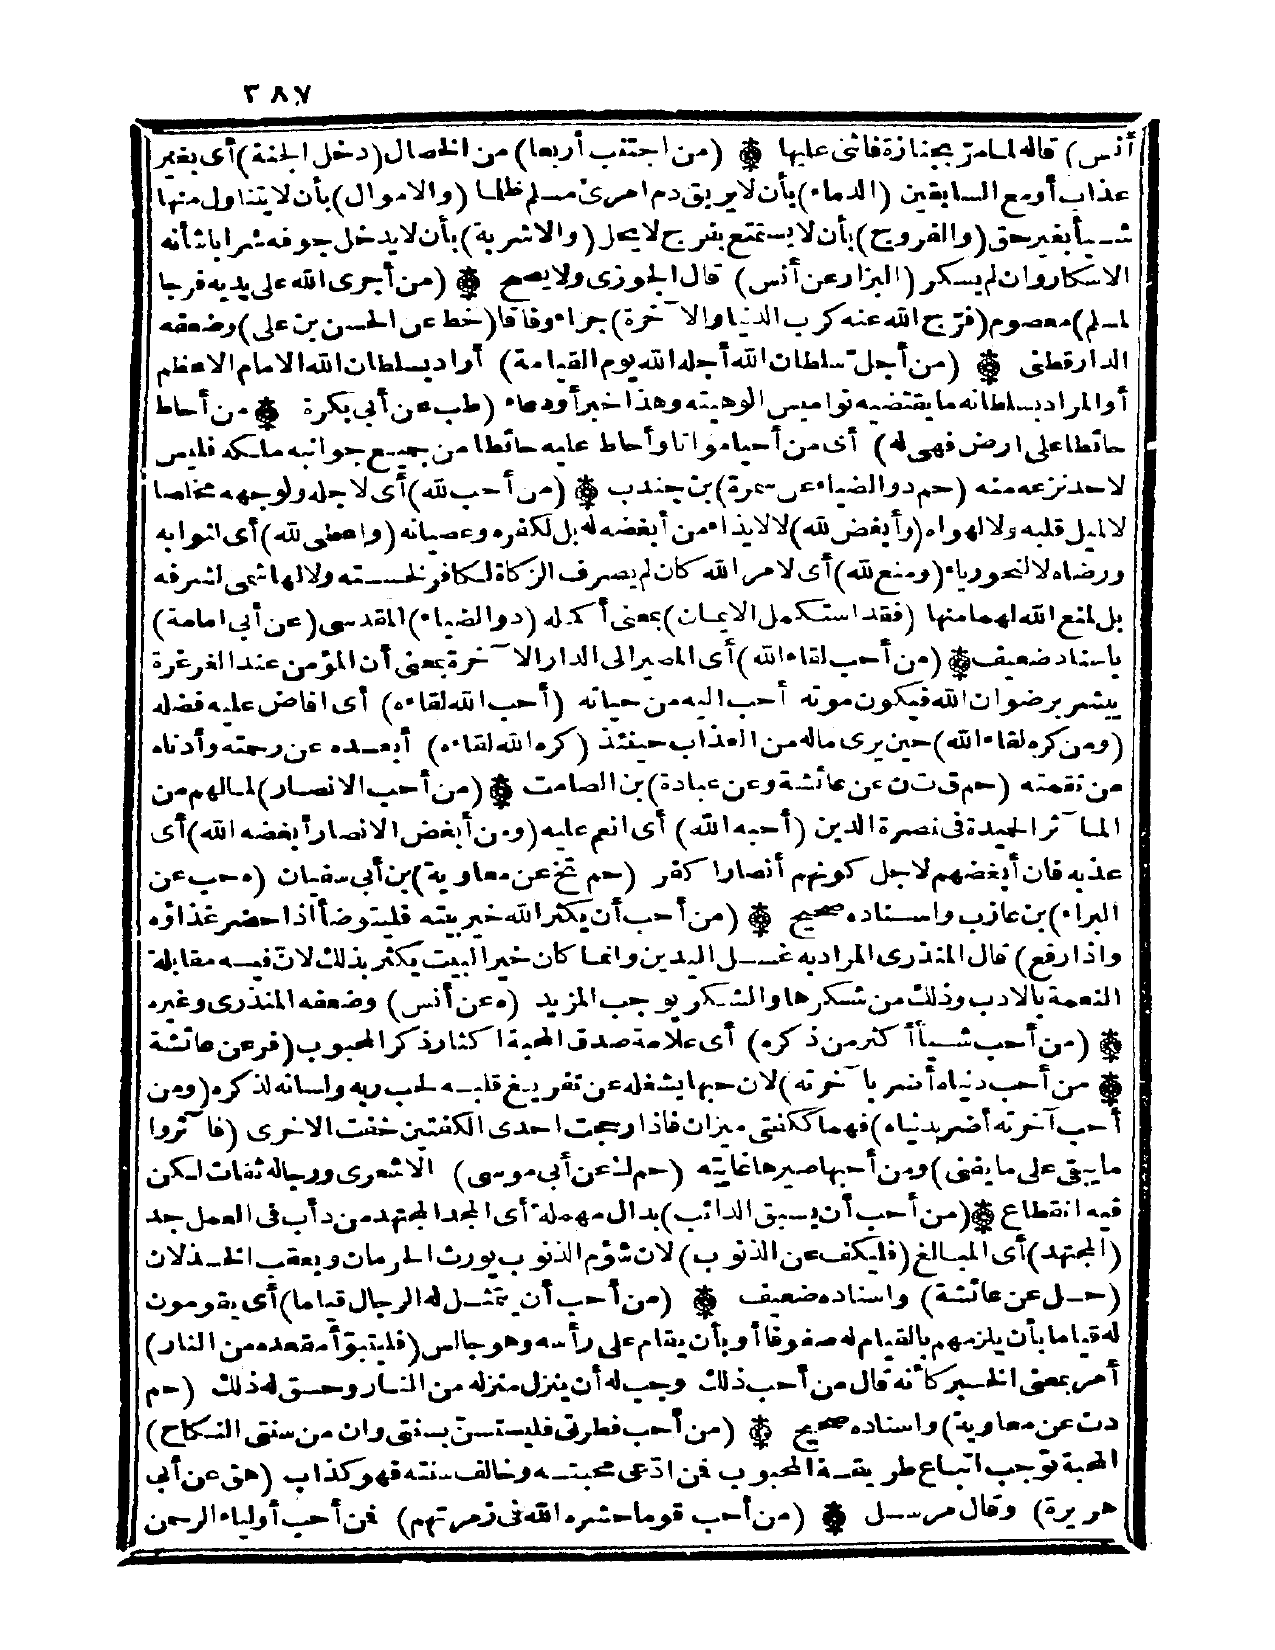 ٣٨٧
أنس) قاله لما مرّ بجنازة فاثنى عليها ۞ (من اجتنب أربعا) من الخصال (دخل الجنة) أى بغير
عذاب أو مع السابقين (الدماء) بأن لا يريق دم امرئ مسلم ظلما (والاموال) بأن لا يتناول منها
شيأ بغير حق (والفروج) بأن لا يستمتع بفرج لا يحل (والاشربة) بأن لا يدخل جوفه شرابا شأنه
الاسكار وان لم يسكر (البزار عن أنس) قال الجوزى ولا يصح ۞ (من أجرى الله على يديه فرجا
لمسلم) معصوم (فرّج الله عنه كرب الدنيا والآخرة) جزاء وفاقا (خط عن الحسن بن على) وضعفه
الدارقطنى ۞ (من أجل سلطان الله أجله الله يوم القيامة) أراد بسلطان الله الامام الاعظم
أو المراد بسلطانه ما يقتضيه نواميس الوهيته وهذا خبر أو دعاء (طب عن أبى بكرة ۞ من أحاط
حائطا على ارض فهى له) أى من أحيا مواتا وأحاط عليه حائطا من جميع جوانبه ملكه فليس
لاحد نزعه منه (حم د والضياء عن سمرة) بن جندب ۞ (من أحب لله) أى لاجله ولوجهه مخلصا
لا لميل قلبه ولا لهواه (وأبغض لله) لا لايذاء من أبغضه له بل لكفره وعصيانه (واعطى لله) أى لثوابه
ورضاه لا لنحو رياء (ومنع لله) أى لامر الله كان لم يصرف الزكاة لكافر لخسته ولا لهاشمى لشرفه
بل لمنع الله لهما منها (فقد استكمل الايمان) بمعنى أكمله (د والضياء) المقدسى (عن أبى امامة)
باسناد ضعيف ۞ (من أحب لقاء الله) أى المصير الى الدار الآخرة بمعنى أن المؤمن عند الغرغرة
يبشر برضوان الله فيكون موته أحب اليه من حياته (أحب الله لقاءه) أى افاض عليه فضله
(ومن كره لقاء الله) حين يرى ماله من العذاب حينئذ (كره الله لقاءه) أبعده عن رحمته وأدناه
من نقمته (حم ق ت ن عن عائشة وعن عبادة) بن الصامت ۞ (من أحب الانصار) لما لهم من
المآثر الحميدة فى نصرة الدين (أحبه الله) أى انعم عليه (ومن أبغض الانصار أبغضه الله) أى
عذبه فان أبغضهم لاجل كونهم أنصارا كفر (حم تخ عن معاوية) بن أبى سفيان (ه حب عن
البراء) بن عازب واسناده صحيح ۞ (من أحب أن يكثر الله خير بيته فليتوضأ اذا حضر غذاؤه
واذا رفع) قال المنذرى المراد به غسل اليدين وانما كان خير البيت يكثر بذلك لان فيه مقابلة
النعمة بالادب وذلك من شكرها والشكر يوجب المزيد (ه عن أنس) وضعفه المنذرى وغيره
۞ (من أحب شيأ أكثر من ذكره) أى علامة صدق المحبة اكثار ذكر المحبوب (فر عن عائشة
۞ من أحب دنياه أضر بآخرته) لان حبها يشغله عن تفريغ قلبه لحب ربه ولسانه لذكره (ومن
أحب آخرته أضر بدنياه) فهما ككفتى ميزان فاذا رجحت احدى الكفتين خفت الاخرى (فآثروا
ما يبقى على ما يفنى) ومن أحبها صيرها غايته (حم ك عن أبى موسى) الاشعرى ورجاله ثقات لكن
فيه انقطاع ۞ (من أحب أن يسبق الدائب) بدال مهملة أى المجد المجتهد من دأب فى العمل جد
(المجتهد) أى المبالغ (فليكف عن الذنوب) لان شؤم الذنوب يورث الحرمان ويعقب الخذلان
(حل عن عائشة) واسناده ضعيف ۞ (من أحب أن يتمثل له الرجال قياما) أى يقومون
له قياما بأن يلزمهم بالقيام له صفوفا أو بأن يقام على رأسه وهو جالس (فليتبوّأ مقعده من النار)
أمر بمعنى الخبر كأنه قال من أحب ذلك وجب له أن ينزل منزله من النار وحق له ذلك (حم
د ت عن معاوية) واسناده صحيح ۞ (من أحب فطرتى فليستنّ بسنتى وان من سنتى النكاح)
المحبة توجب اتباع طريقة المحبوب فمن ادّعى محبته وخالف سنته فهو كذاب (هق عن أبى
هريرة) وقال مرسل ۞ (من أحب قوما حشره الله فى زمرتهم) فمن أحب أولياء الرحمن